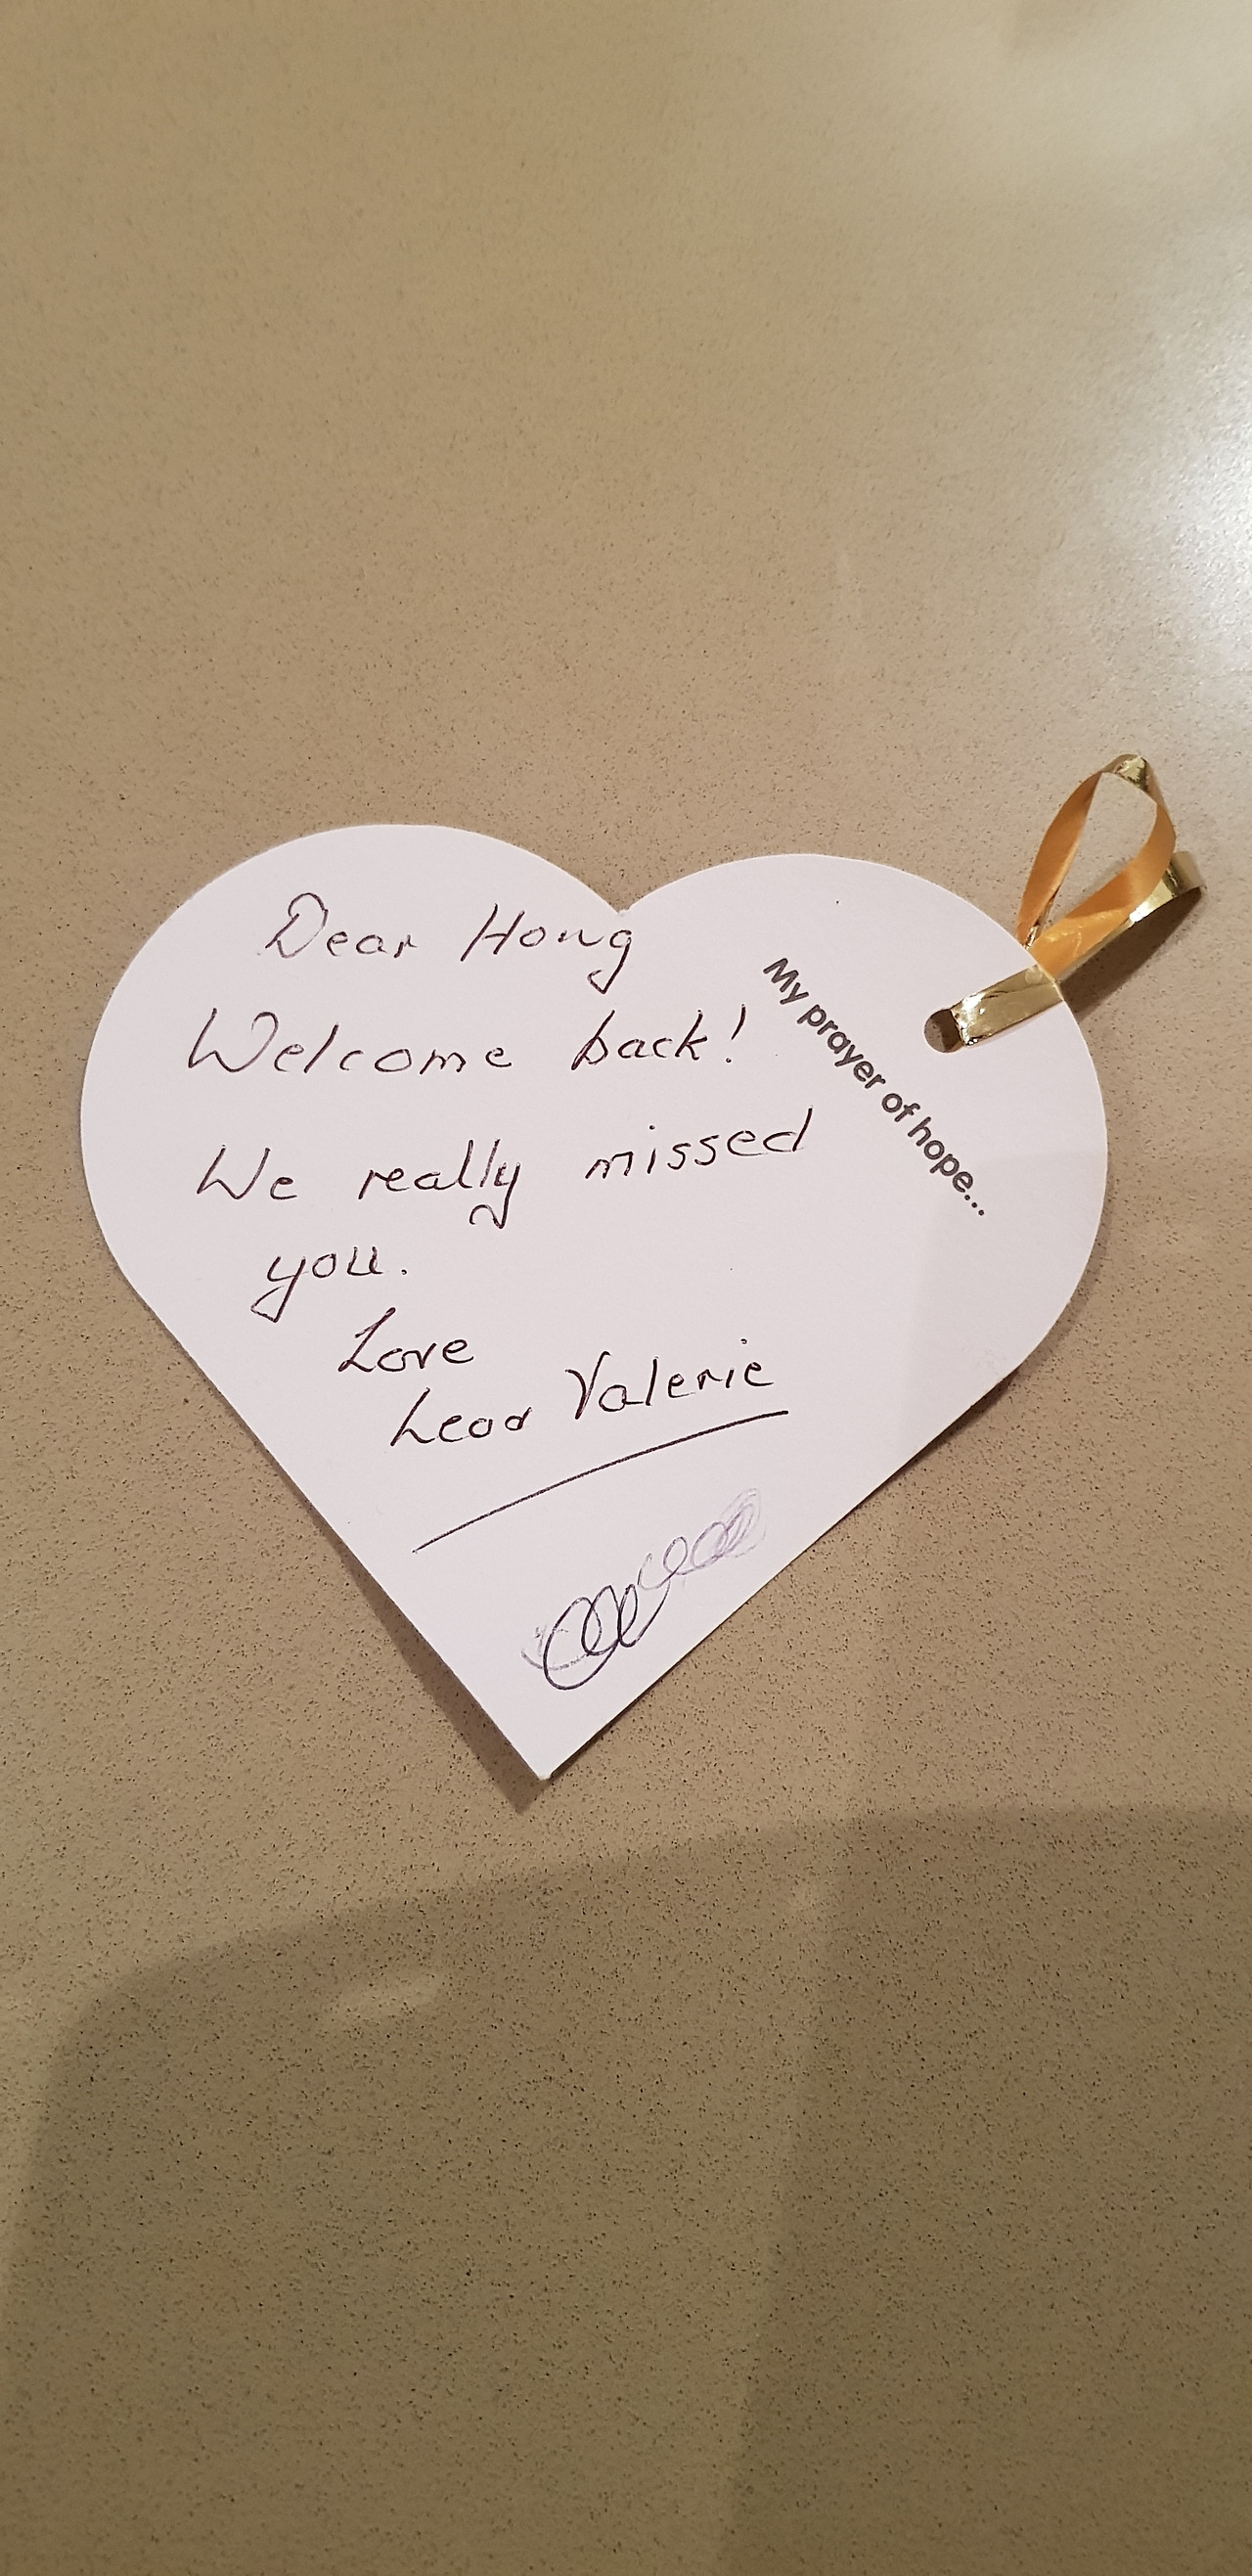 Dear Hong
Welcome back!
We really missed
you.
Love
Valerie
My prayer of hope...